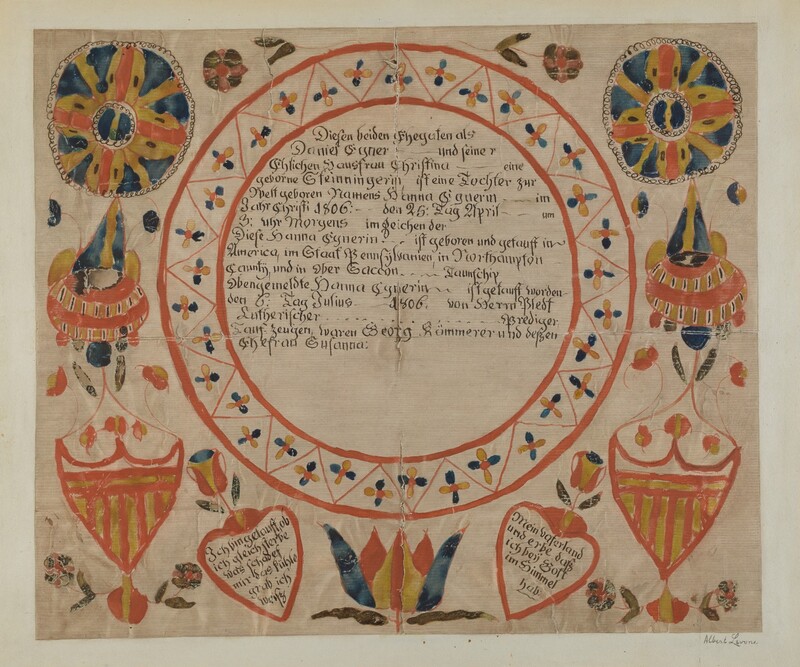 Diesen beiden Ehegaten als
Daniel Egner und seiner
Ehlichen Hausfrau Christina eine
geborne Steinningerin ist eine Tochter zur
Welt geboren Namens Hanna Egnerin im
Jahr Christi 1806. den 25. Tag April um
5. uhr Morgens im Zeichen der
Diese Hanna Egnerin ist geboren und getauft in
America, im Staat Pennsylvanien in Northampton
Caunty, und in Ober Saccon Taunschip
Obengemeldte Hanna Egnerin ist getauft worden
den 6. Tag Julius 1806. von Herrn
Lutherischer Prediger
Tauf zeugen waren Georg Kömmerer und deßen
Ehefrau Susanna:
Ich bin getauft, ob
ich gleich sterbe
was schadet
mir das kühle
grab ich
weiß
Mein Vaterland
und erbe daß
ich bey Gott
im Himmel
hab
Albert Levone